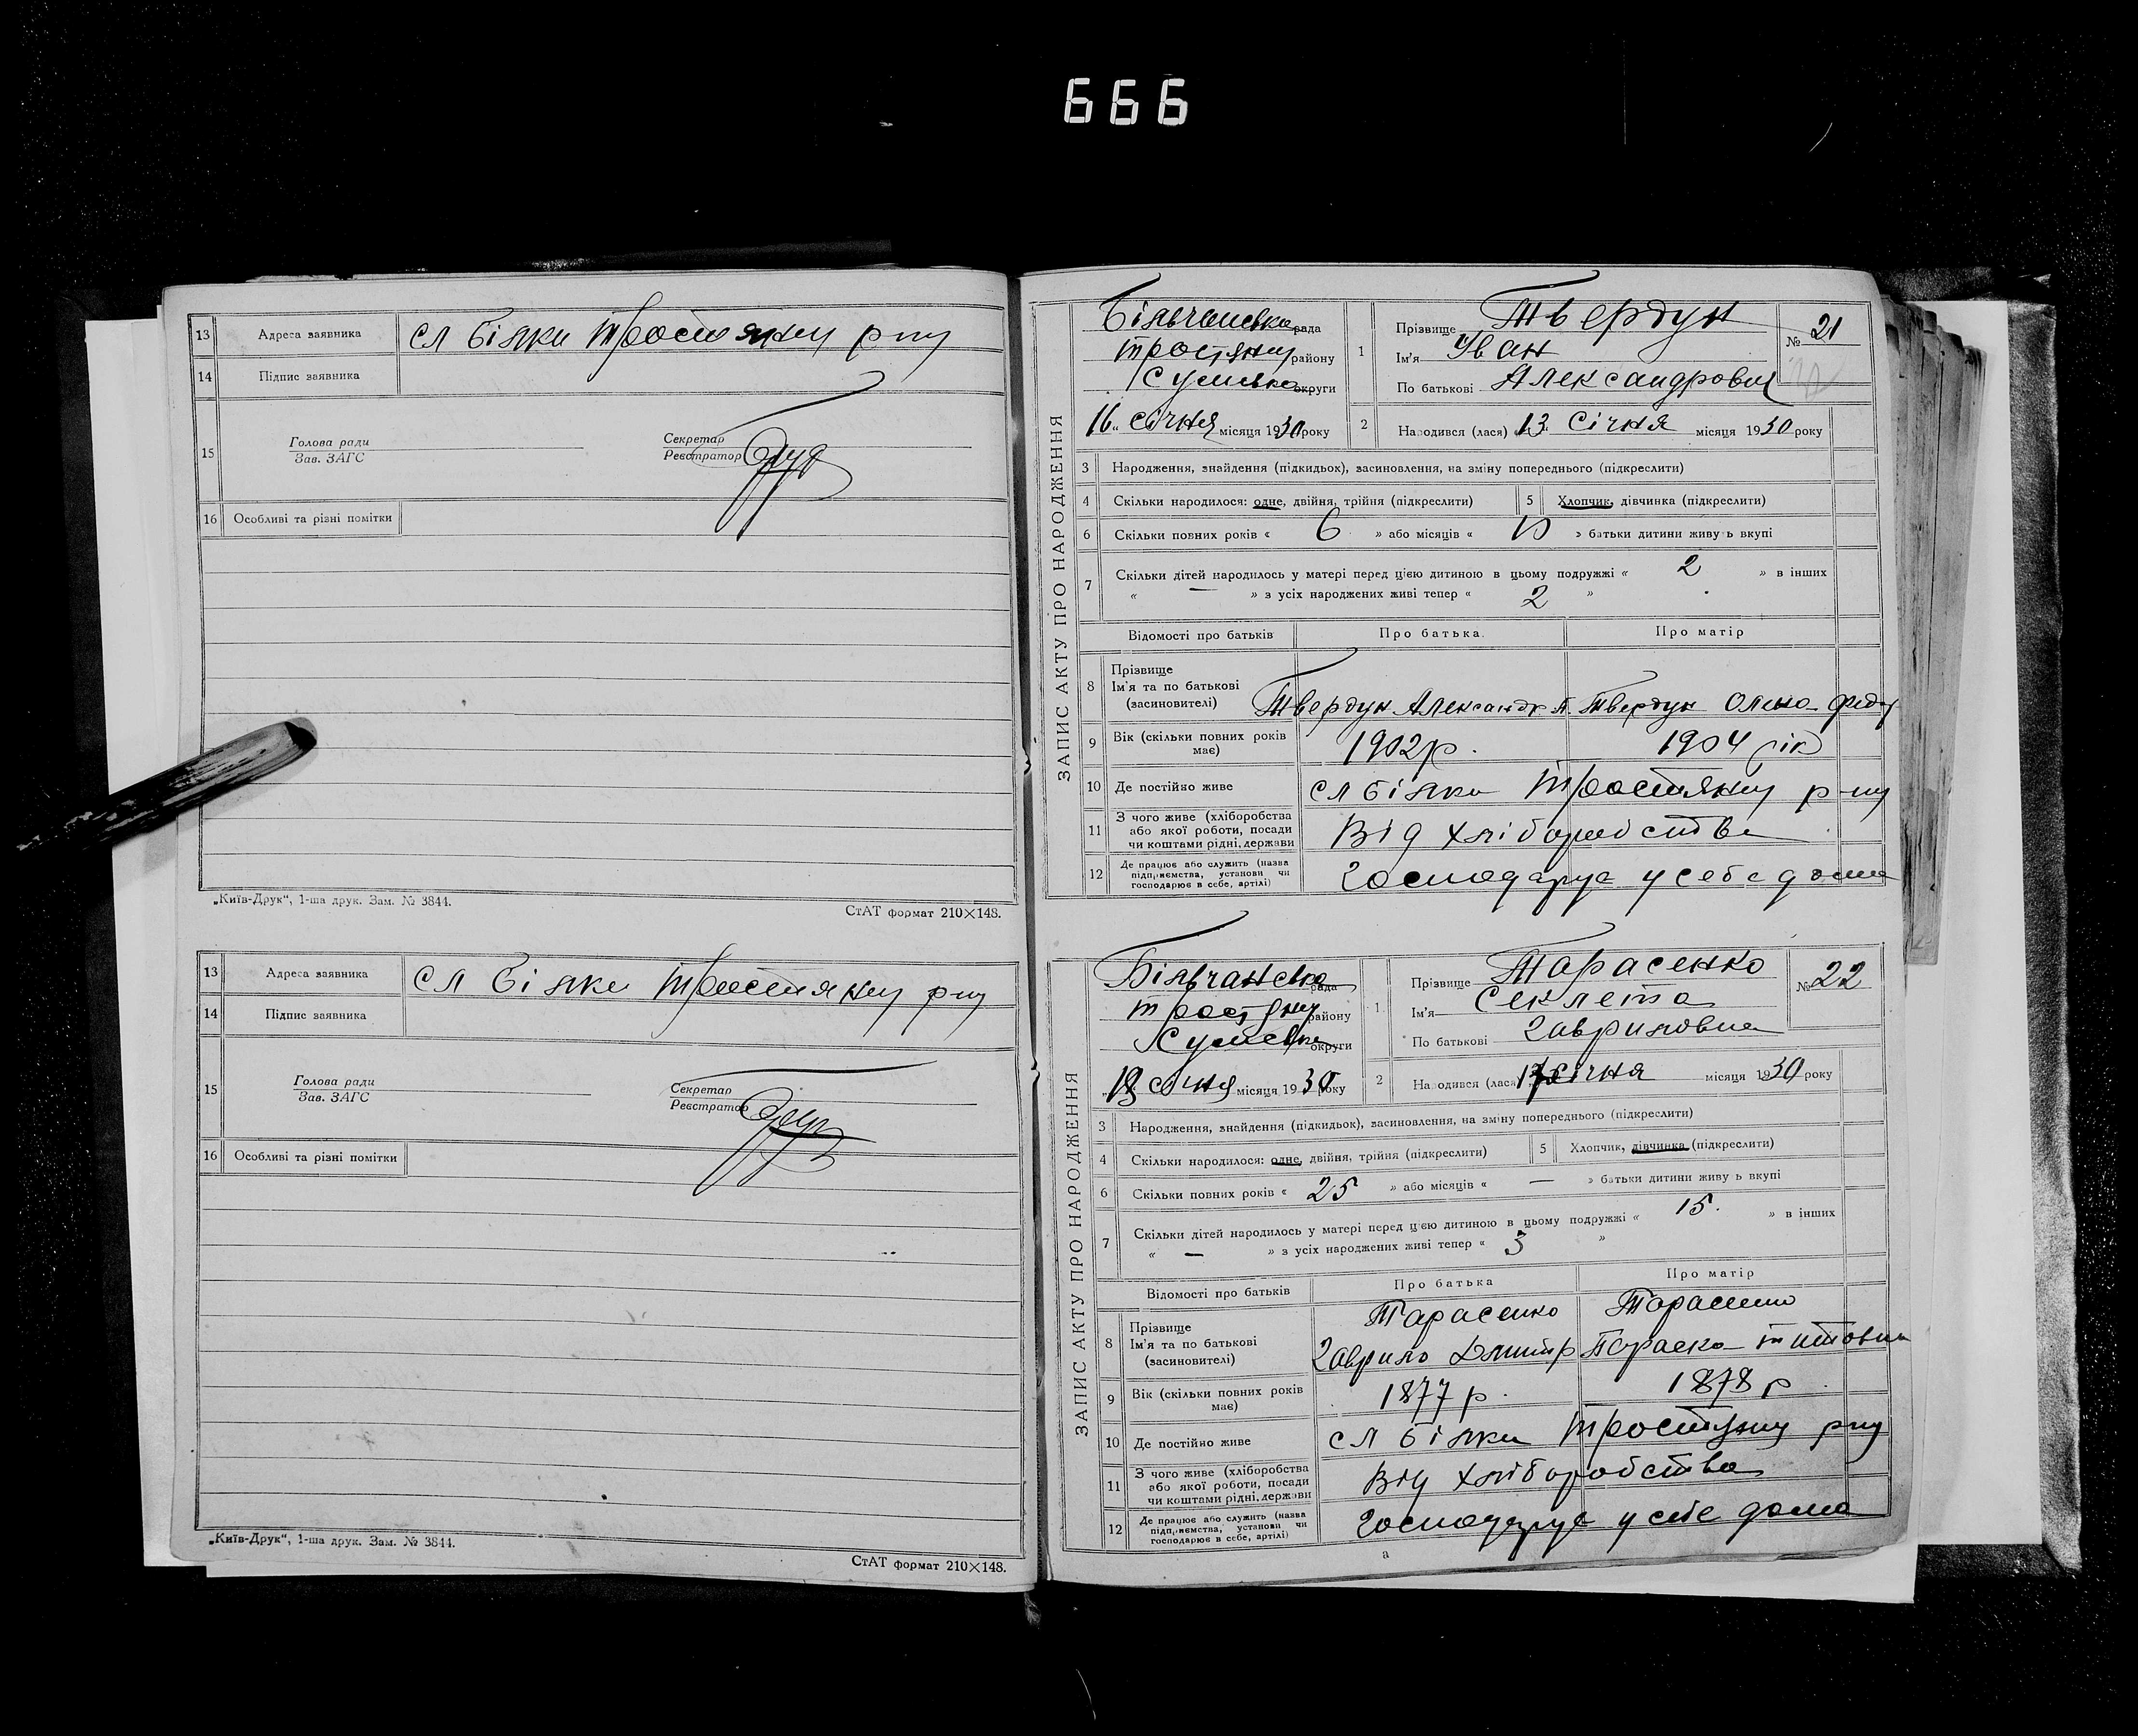 666
13 Адреса заявника сл Білки Тростянец р-ну
14 Підпис заявника
15 Голова ради
Зав. ЗАГС
Секретар
Реєстратор
16 Особливі та різні помітки
„Київ-Друк“, 1-ша друк. Зам. № 3844.
СтАТ формат 210×148.
13 Адреса заявника сл Білки Тростянец р-ну
14 Підпис заявника
15 Голова ради
Зав. ЗАГС
Секретар
Реєстратор
16 Особливі та різні помітки
„Київ-Друк“, 1-ша друк. Зам. № 3844.
СтАТ формат 210×148.
ЗАПИС АКТУ ПРО НАРОДЖЕННЯ
Більчанська рада
району
Сумська округи
16 січня місяця 1930 року
1 Прізвище Твердун
Ім'я Іван
По батькові Александрович
№ 21
2 Народився (лася) 13 Січня місяця 1930 року
3 Народження, знайдення (підкидьок), засиновлення, на зміну попереднього (підкреслити)
4 Скільки народилося: одне, двійня, трійня (підкреслити) 5 Хлопчик, дівчинка (підкреслити)
6 Скільки повних років « 6 » або місяців « » батьки дитини живуть вкупі
7 Скільки дітей народилось у матері перед цією дитиною в цьому подружжі « 2 » в інших
« — » з усіх народжених живі тепер « 2 »
Відомості про батьків Про батька Про матір
8 Прізвище
Ім'я та по батькові
(засиновителі) Твердун Александр П. Твердун Олена Фед
9 Вік (скільки повних років має) 1902 р. 1904 рік
10 Де постійно живе сл Білки р-ну
11 З чого живе (хліборобства
або якої роботи, посади
чи коштами рідні, держави Від хліборобства
12 Де працює або служить (назва
підприємства, установи чи
господарює в себе, артілі) Господарує у себе дома
ЗАПИС АКТУ ПРО НАРОДЖЕННЯ
Більчанська рада
району
Сумська округи
18 січня місяця 1930 року
1 Прізвище Тарасенко
Ім'я Секлета
По батькові Гавриловна
№ 22
2 Народився (лася) 17 січня місяця 1930 року
3 Народження, знайдення (підкидьок), засиновлення, на зміну попереднього (підкреслити)
4 Скільки народилося: одне, двійня, трійня (підкреслити) 5 Хлопчик, дівчинка (підкреслити)
6 Скільки повних років « 25 » або місяців « — » батьки дитини живуть вкупі
7 Скільки дітей народилось у матері перед цією дитиною в цьому подружжі « 15. » в інших
« — » з усіх народжених живі тепер « 3 »
Відомості про батьків Про батька Про матір
8 Прізвище
Ім'я та по батькові
(засиновителі) Тарасенко Тарасенко
Гаврило Дмитр Параска Титовна
9 Вік (скільки повних років має) 1877 р. 1878 р
10 Де постійно живе сл Білки р-ну
11 З чого живе (хліборобства
або якої роботи, посади
чи коштами рідні, держави Від хліборобства
12 Де працює або служить (назва
підприємства, установи чи
господарює в себе, артілі) Господарує у себе дома